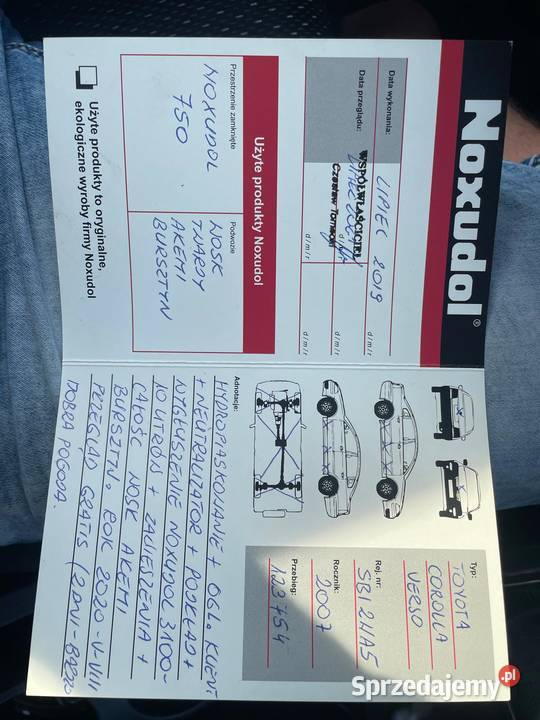 Noxudol®
Data wykonania:
LIPIEC 2019
d/m/r
Data przeglądu:
WSPÓŁWŁAŚCICIEL
Czesław Tomasik
d/m/r
d/m/r
d/m/r
Użyte produkty Noxudol
Przestrzenie zamknięte
NOXUDOL
750
Podwozie
WOSK
TWARDY
AKEMI
BURSZTYN
Użyte produkty to oryginalne,
ekologiczne wyroby firmy Noxudol
Typ:
TOYOTA
COROLLA
VERSO
Rej. nr:
SBI 2HA5
Rocznik:
2007
Przebieg:
123754
Adnotacje:
HYDROPIASKOWANIE + OGL. KLIENT
+ NEUTRALIZATOR + PODKŁAD +
WYGŁUSZENIE NOXUDOL 3100-
10 LITRÓW + ZAWIESZENIA +
CAŁOŚĆ WOSK AKEMI
BURSZTYN. ROK 2020-V-VIII
PRZEGLĄD GRATIS (2 DNI - BARDZO
DOBRA POGODA.
Sprzedajemy.pl